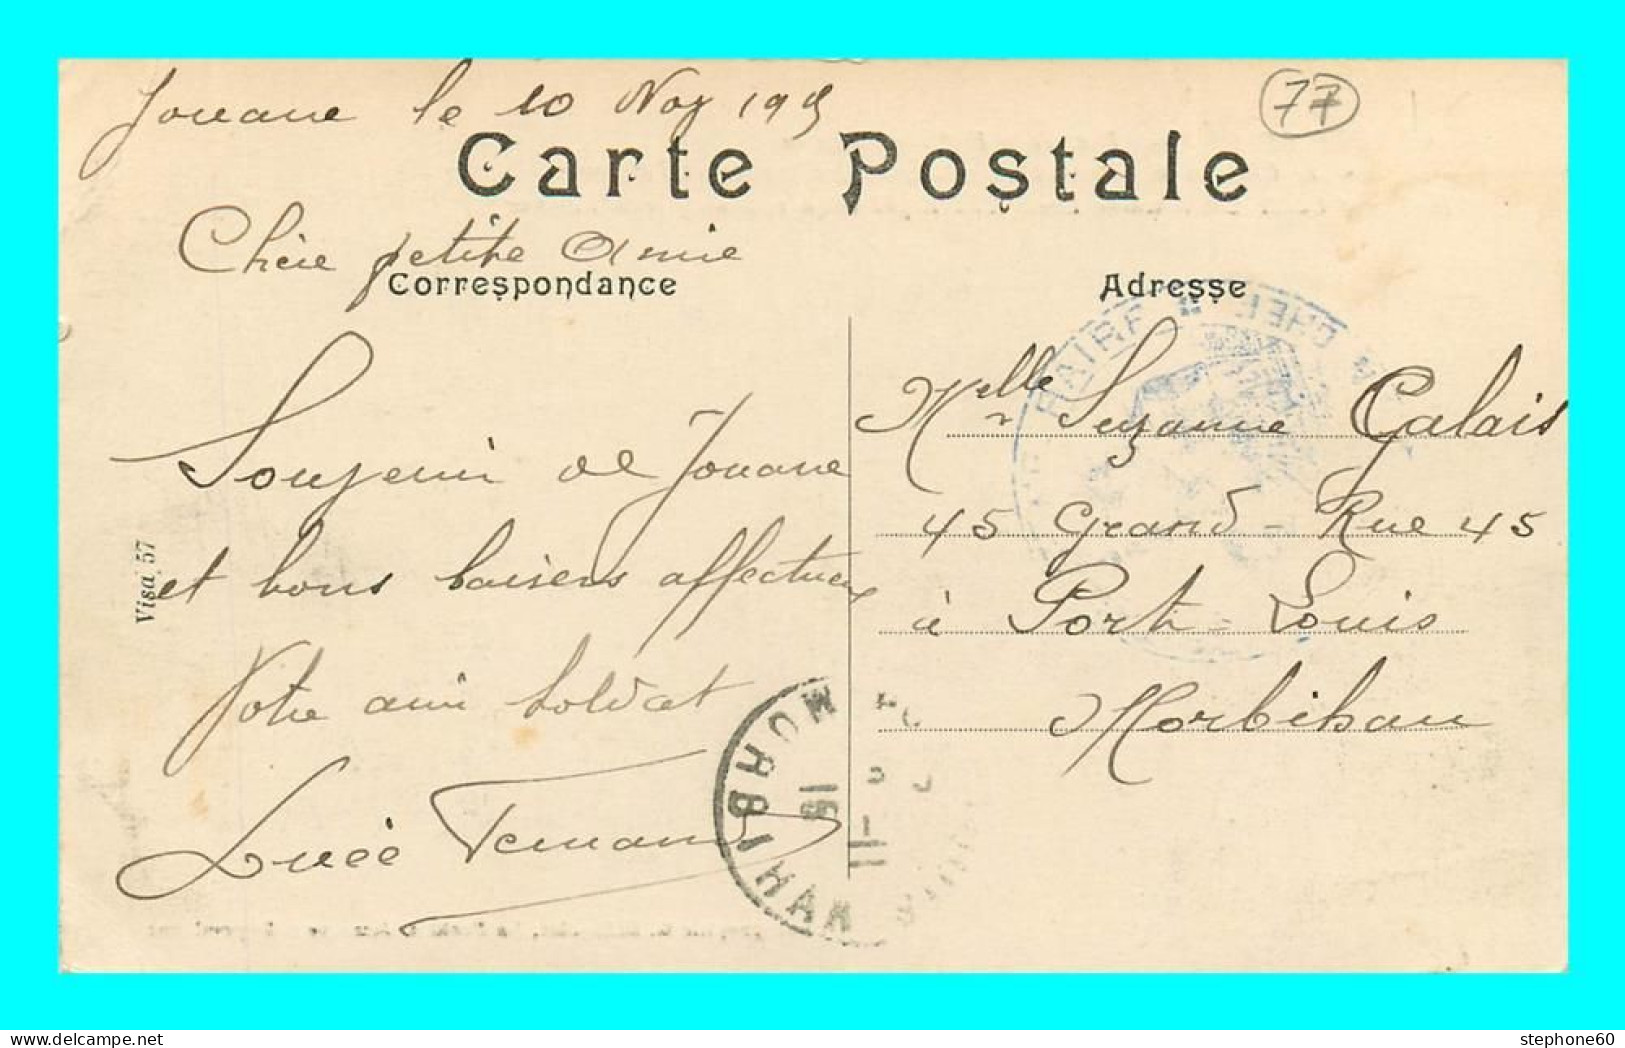 Jouane le 10 Nov 1915
77
Carte Postale
Chère petite Amie
Correspondance
Adresse
Souvenir de Jouane
et bons baisers affectueux
Votre ami soldat
Fernand
Visa 57
Melle Suzanne Calais
45 Grand-Rue 45
à Port-Louis
Morbihan
MORBIHAN
11-
15
delcampe.net
stephone60